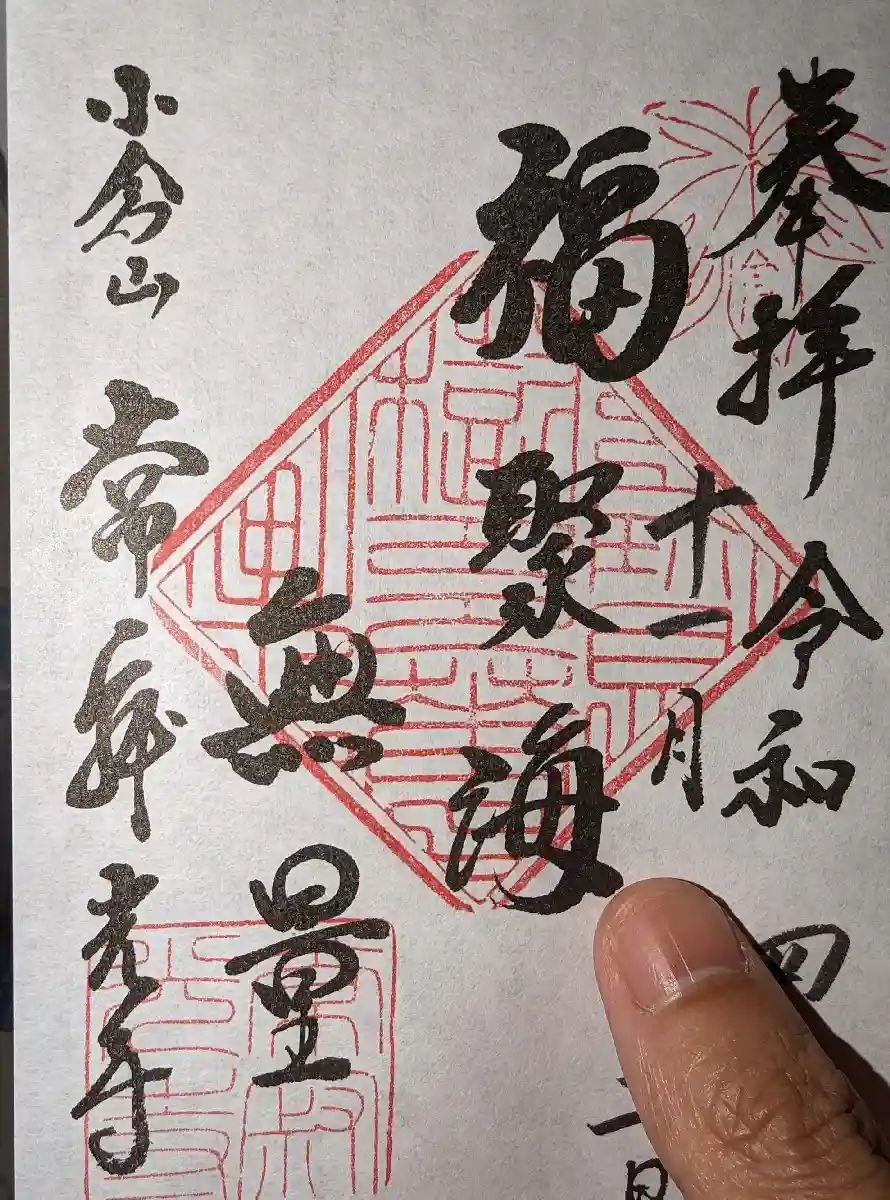 奉拝 令和 四
十一月 日
福聚海
無量
小倉山 常寂光寺